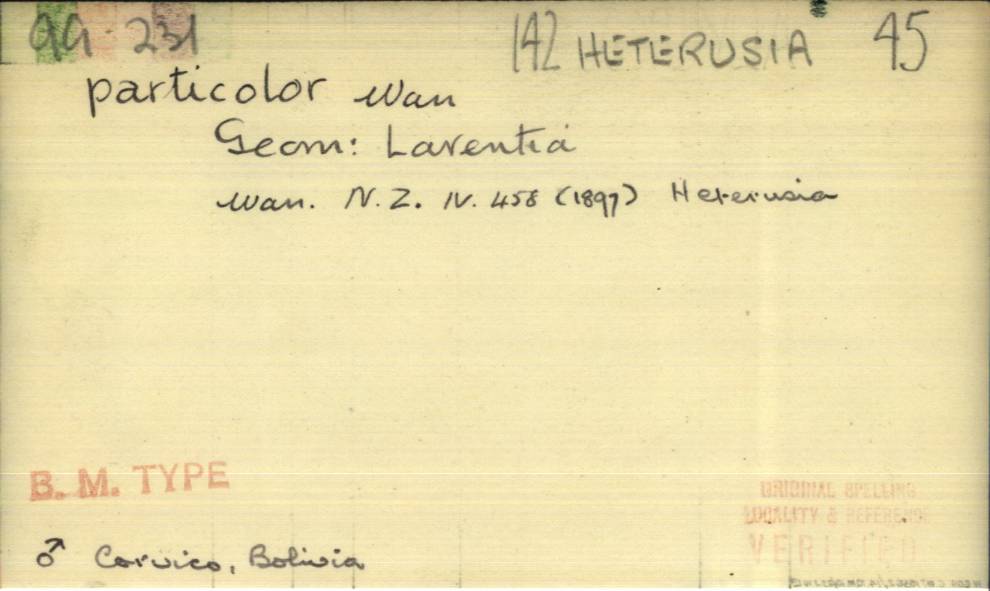 99-231 142 HETERUSIA 45
particolor Warr
Geom: Larentia
Warr. N.Z. IV. 458 (1897) Heterusia
B. M. TYPE
ORIGINAL SPELLING
LOCALITY & REFERENCE
VERIFIED
♂ Corvico, Bolivia